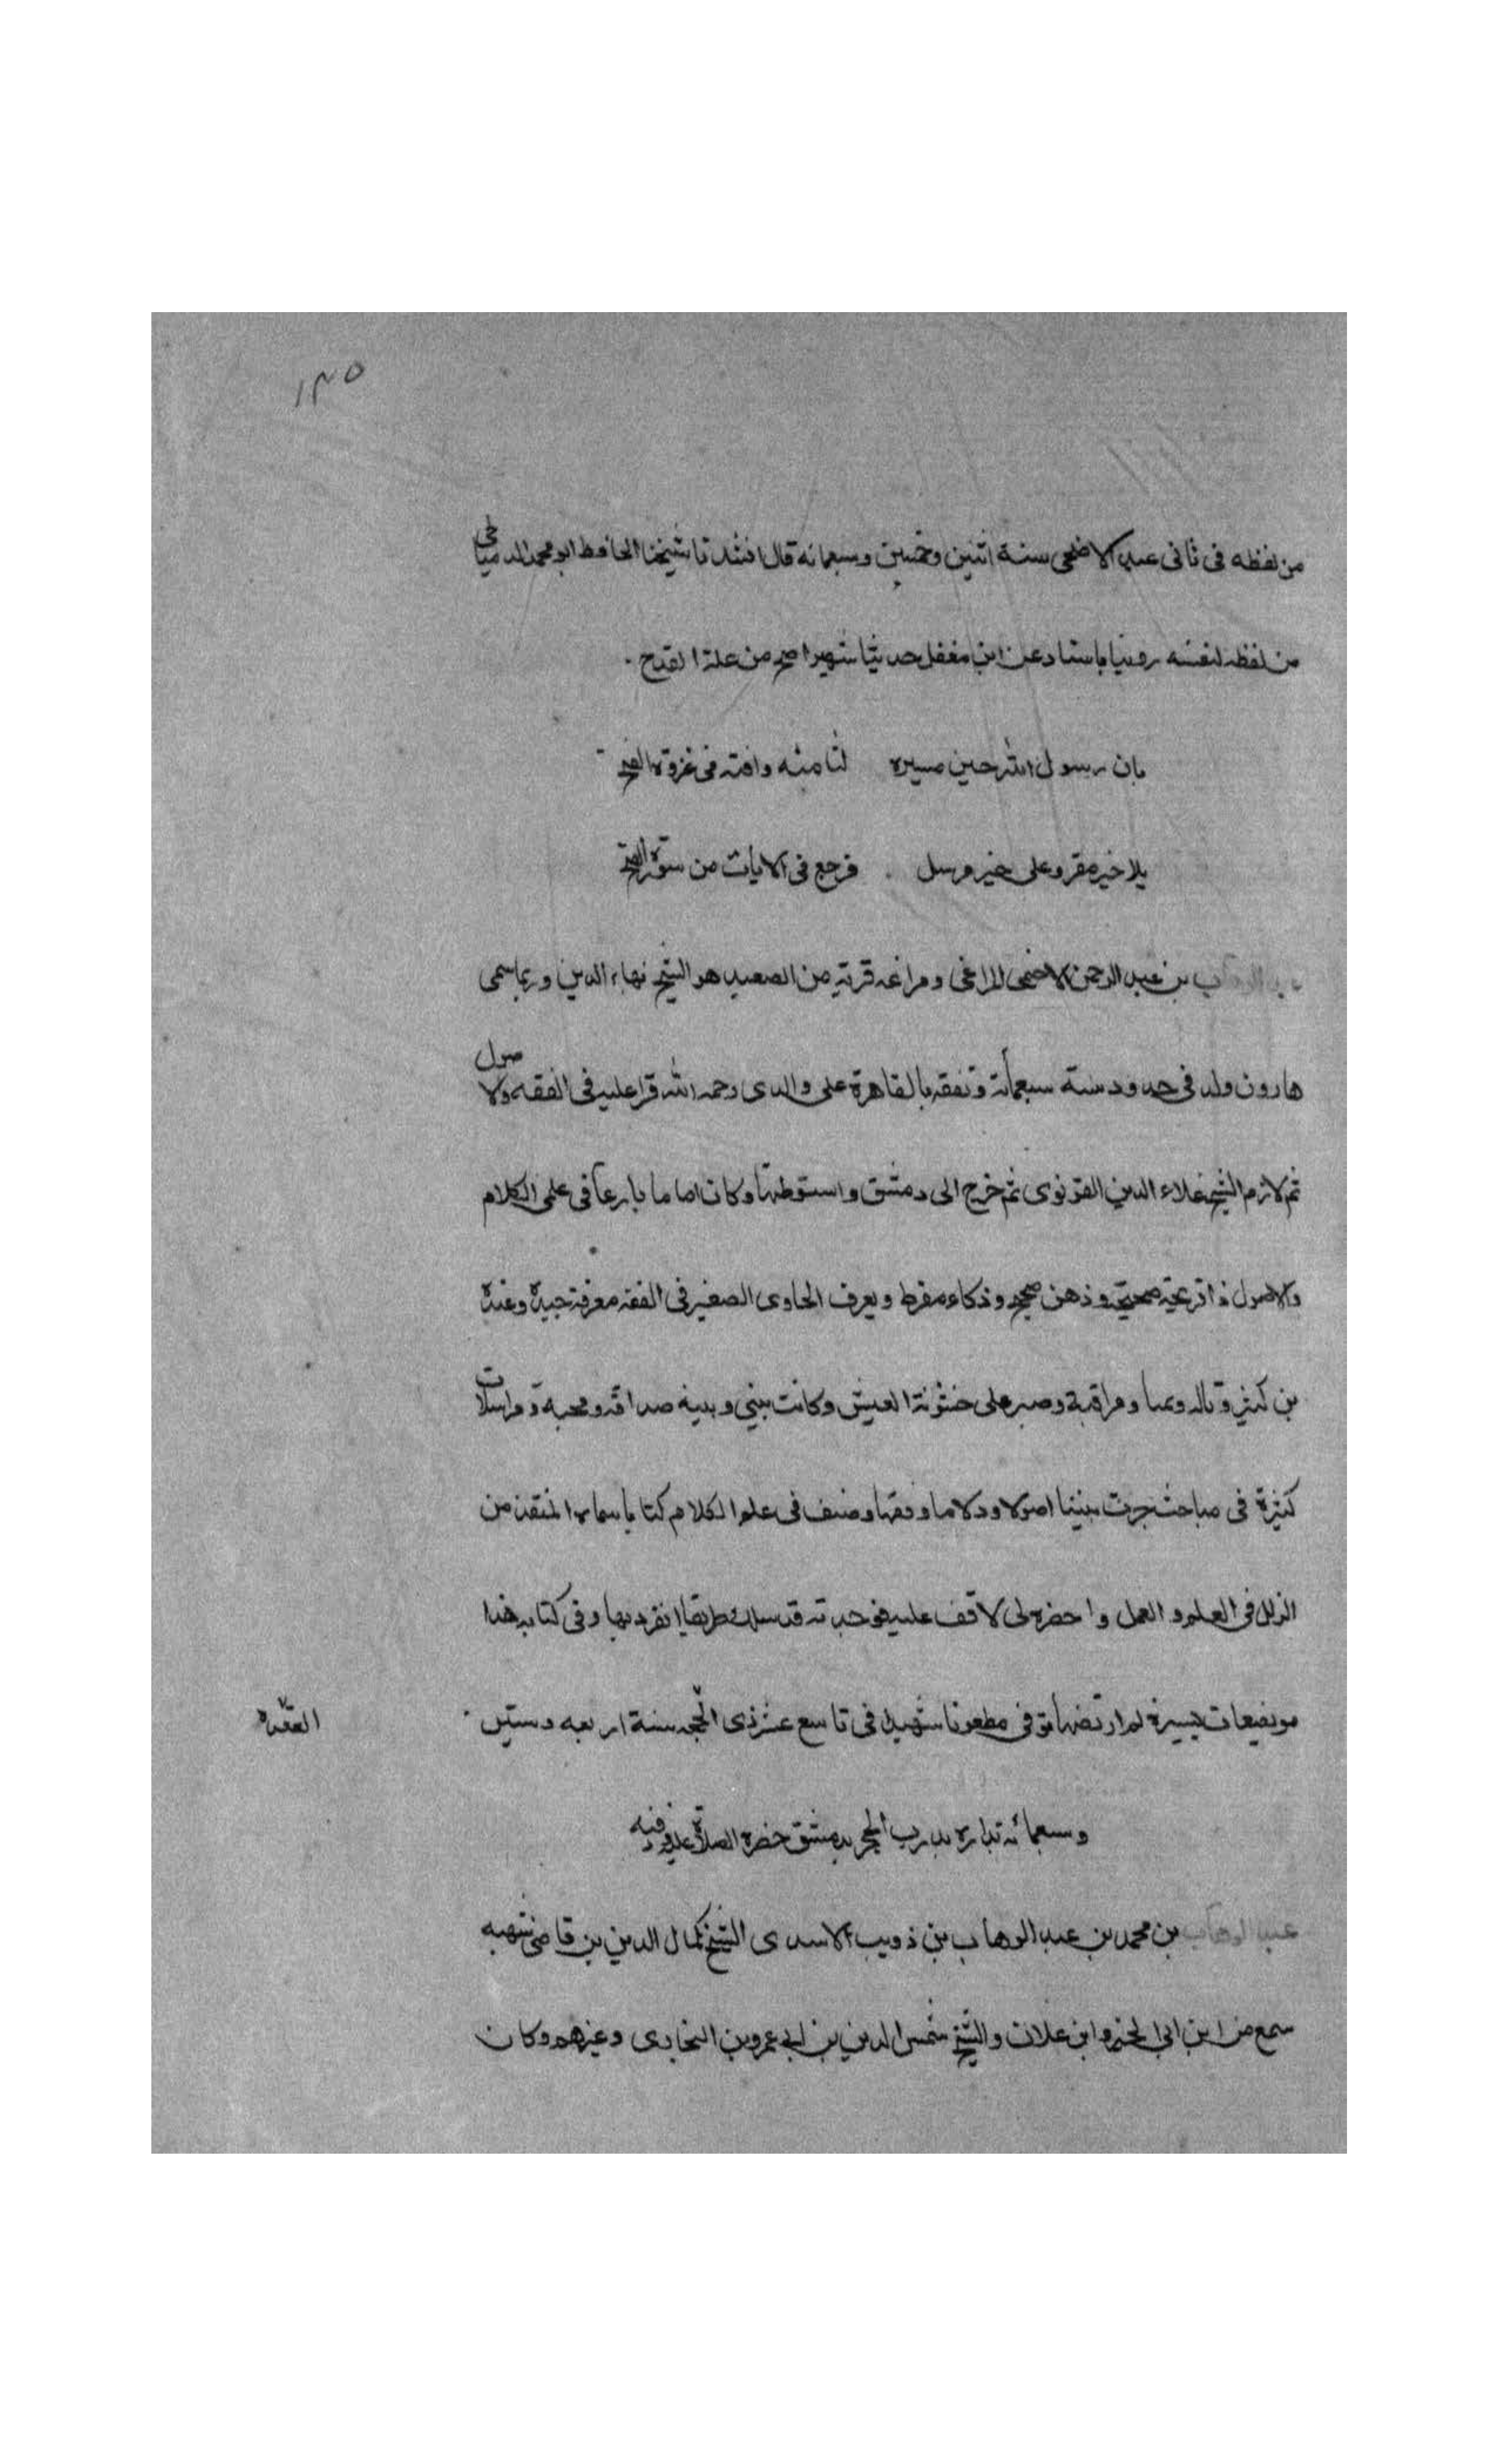 ١٣٥
من لفظه فى ثانى عيد الاضحى سنة اثنين وخمسين وسبعمائه قال انشدنا شيخنا الحافظ ابو محمد الدمياطى
من لفظه لنفسه روينا باسناد عن ابن مغفل حديثا شهيرا صح من علة القدح
بان رسول الله حين مسيره لثامنه وافته فى غزوة الفتح
يلا خير مقروعلى خير مرسل فرجع فى الايات من سورة الفتح
بن عبد الرحمن الاخمى المراغى ومراغه قرية من الصعيد هو الشيخ بهاء الدين وربما سمى
هارون ولد فى حدود سنه سبعمائة وتفقه بالقاهرة على والدى رحمه الله قرا عليه فى الفقه والاصول
ثم لازم الشيخ علاء الدين القونوى ثم خرج الى دمشق واستوطنها وكان اماما بارعا فى علمى الكلام
والاصول ذا قريحة صحيحة وذهن صحيح وذكاء مفرط ويعرف الحاوى الصغير فى الفقه معرفة جيدة وعنده
كثير وتاله ومراقبة وصبر على خشونة العيش وكانت بينى وبينه صداقه ومحبه ومراسلات
كثيرة فى مباحث جرت بيننا اصولا وكلاما وفقها وصنف فى علم الكلام كتابا سماه المنقذ من
الزلل فى العلم والعمل واحضره لى لاقف عليه فوجدته قد سلك طريقا انفرد بها وفى كتابه هذا
مويضعات يسيرة لم ارتضها توفى مطعونا شهيدا فى تاسع عشر ذى الحجه سنة اربعه وستين
العقده
وسبعمائه بداره بدرب الحجر بدمشق حضره الصلاة عليه ودفنه
عبد الوهاب بن محمد بن عبد الوهاب بن ذويب الاسدى الشيخ كمال الدين بن قاضى شهبه
سمع من ابن ابى الخير وابن علان والشيخ شمس الدين بن ابى عمر وبن البخارى وغيرهم وكان